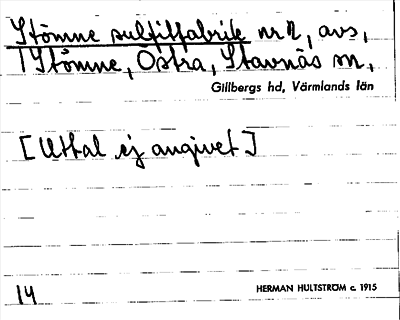 Stömne sulfitfabrik nr 2, avs,
Stömne, Östra, Stavnäs sn,
Gillbergs hd, Värmlands län
[Uttal ej angivet]
14
HERMAN HULTSTRÖM c. 1915